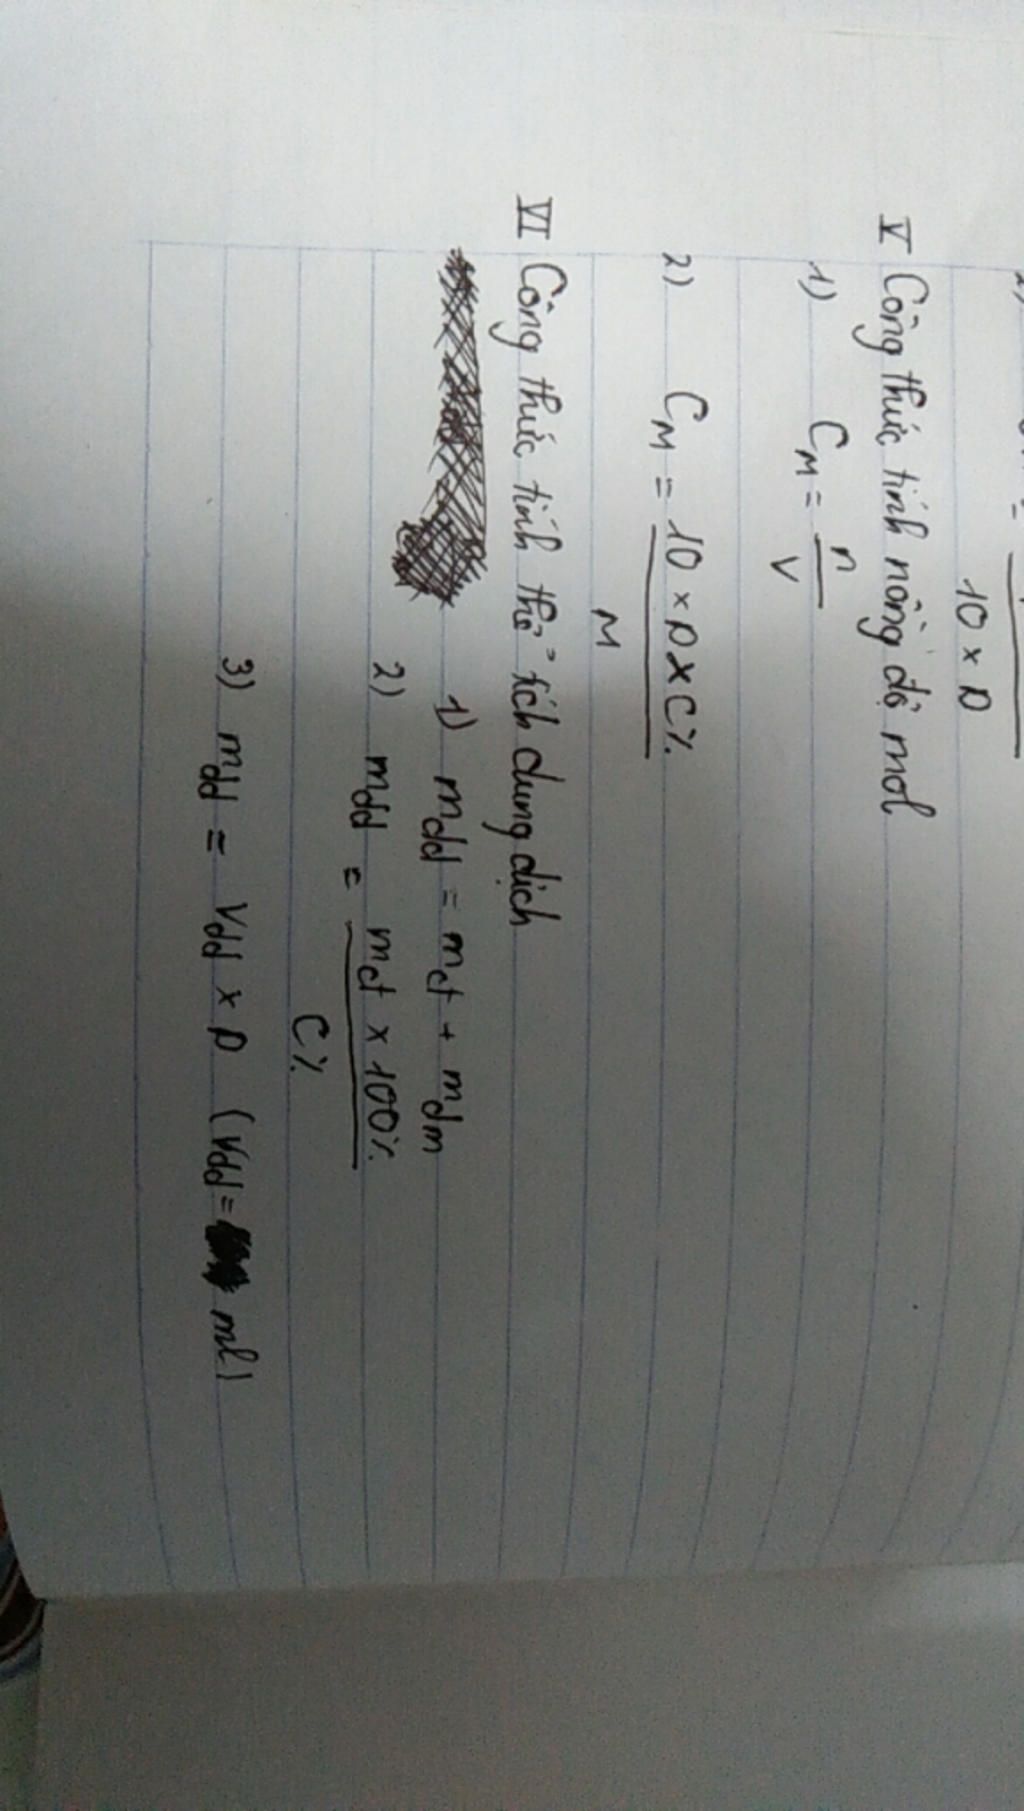 10 × D
V Công thức tính nồng độ mol
1) CM = n
V
2) CM = 10 × D × C%
M
VI Công thức tính thể tích dung dịch
1) mdd = mct + mdm
2) mdd = mct × 100%
C%
3) mdd = Vdd × D (Vdd = ml)